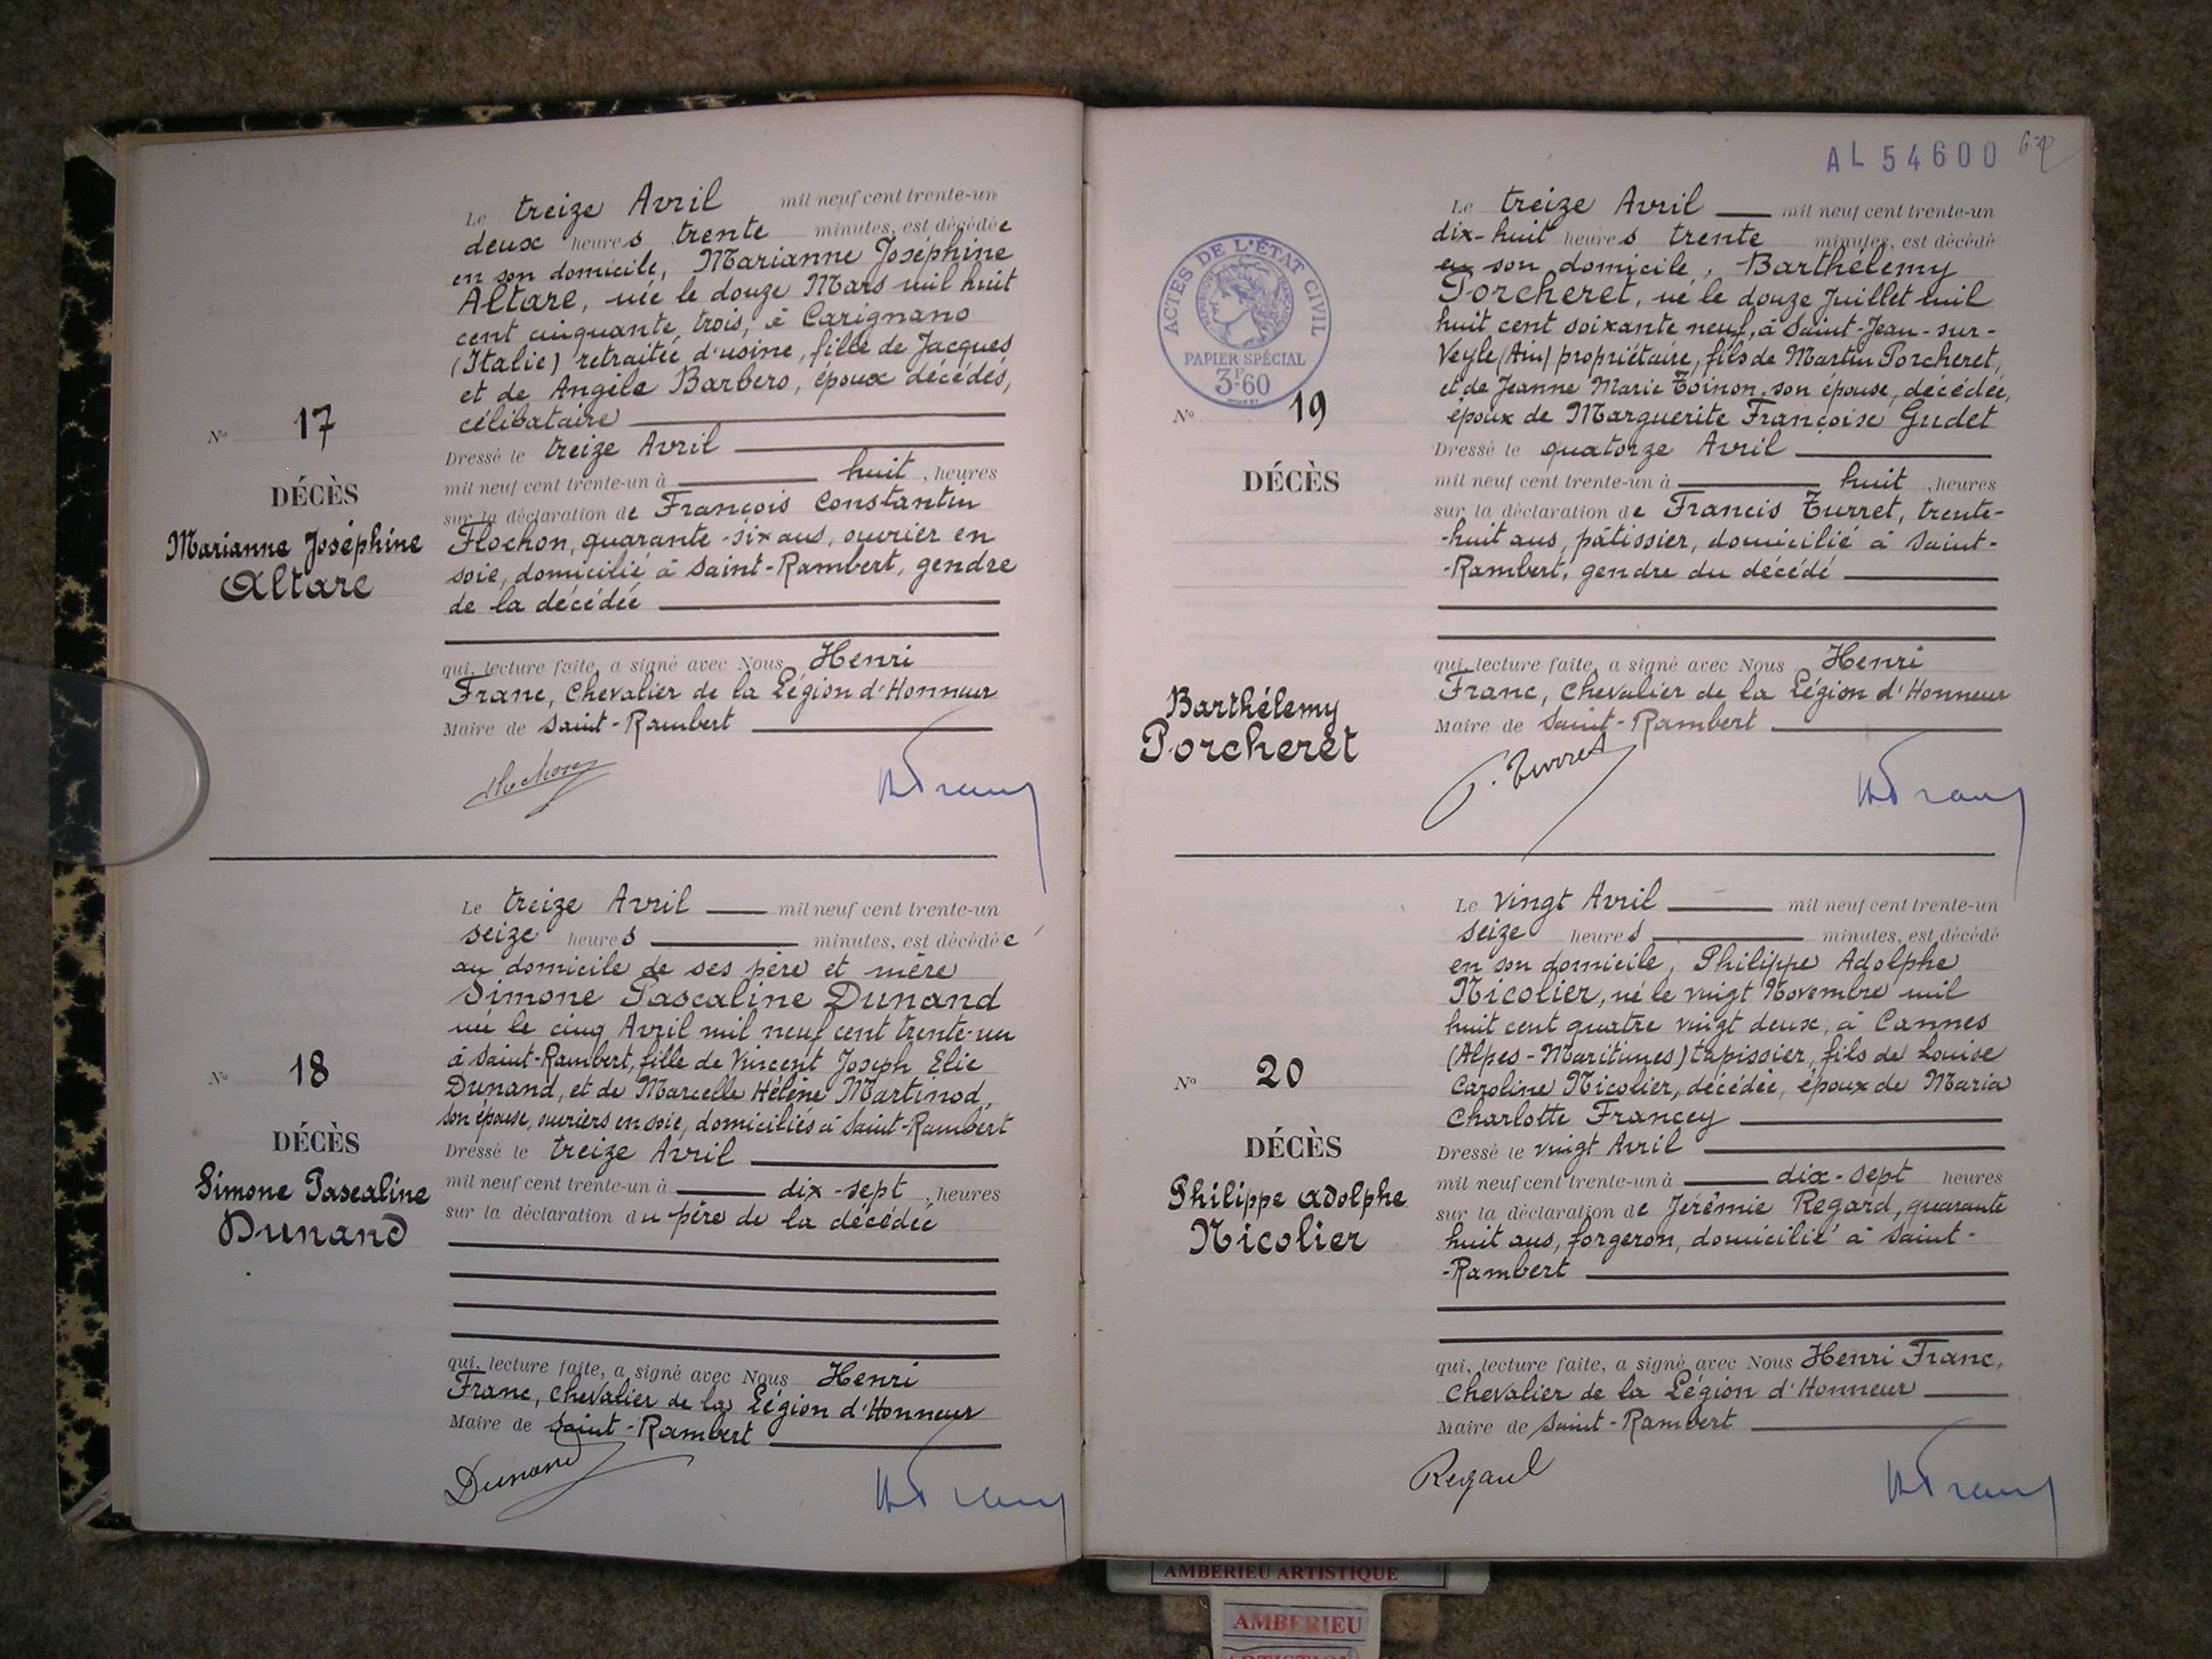 Le treize Avril mil neuf cent trente-un
deux heures trente minutes, est décédée
en son domicile, Marianne Joséphine
Altare, née le douze Mars mil huit
cent cinquante trois, à Carignano
(Italie) retraitée d'usine, fille de Jacques
et de Angèle Barbero, époux décédés,
célibataire
N° 17
DÉCÈS
Marianne Joséphine
Altare
Dressé le treize Avril
mil neuf cent trente-un à huit, heures
sur la déclaration de François Constantin
Flochon, quarante-six ans, ouvrier en
soie, domicilié à Saint-Rambert, gendre
de la décédée
qui, lecture faite, a signé avec Nous Henri
Franc, Chevalier de la Légion d'Honneur
Maire de Saint-Rambert
Flochon
HFranc
Le treize Avril mil neuf cent trente-un
seize heures minutes, est décédée
au domicile de ses père et mère
Simone Pascaline Dunand
née le cinq Avril mil neuf cent trente-un
à Saint-Rambert, fille de Vincent Joseph Elie
Dunand, et de Marcelle Hélène Martinod,
son épouse, ouriers en soie, domiciliés à Saint-Rambert
N° 18
DÉCÈS
Simone Pascaline
Dunand
Dressé le treize Avril
mil neuf cent trente-un à dix-sept, heures
sur la déclaration du père de la décédée
qui, lecture faite, a signé avec Nous Henri
Franc, Chevalier de la Légion d'Honneur
Maire de Saint-Rambert
Dunand
HFranc
AL 54600
ACTES DE L'ÉTAT CIVIL
PAPIER SPÉCIAL
3F60
Le treize Avril mil neuf cent trente-un
dix-huit heures trente minutes, est décédé
en son domicile, Barthélemy
Porcheret, né le douze Juillet mil
huit cent soixante neuf, à Saint-Jean-sur-
Veyle (Ain) propriétaire, fils de Martin Porcheret,
et de Jeanne Marie Toinon, son épouse, décédée,
époux de Marguerite Françoise Gudet
N° 19
DÉCÈS
Barthélemy
Porcheret
Dressé le quatorze Avril
mil neuf cent trente-un à huit, heures
sur la déclaration de Francis Turret, trente-
-huit ans, pâtissier, domicilié à Saint-
-Rambert, gendre du décédé
qui, lecture faite, a signé avec Nous Henri
Franc, Chevalier de la Légion d'Honneur
Maire de Saint-Rambert
F. Turret
HFranc
Le vingt Avril mil neuf cent trente-un
seize heures minutes, est décédé
en son domicile, Philippe Adolphe
Nicolier, né le vingt Novembre mil
huit cent quatre vingt deux, à Cannes
(Alpes-Maritimes) tapissier, fils de Louise
Caroline Nicolier, décédée, époux de Maria
Charlotte Francey
N° 20
DÉCÈS
Philippe Adolphe
Nicolier
Dressé le vingt Avril
mil neuf cent trente-un à dix-sept heures
sur la déclaration de Jérémie Regard, quarante
huit ans, forgeron, domicilié à Saint-
-Rambert
qui, lecture faite, a signé avec Nous Henri Franc,
Chevalier de la Légion d'Honneur
Maire de Saint-Rambert
Regard
HFranc
AMBERIEU ARTISTIQUE
AMBERIEU
ARTISTIQUE